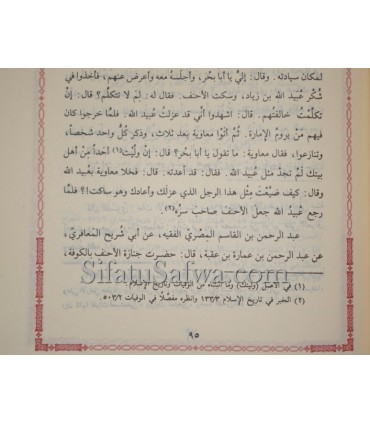 لمكان سيادته. وقال: إليَّ يا أبا بحْر، وأجلسَهُ معه وأعرض عنهم، فأخذوا في
شُكْر عُبَيد الله بن زياد، وسكت الأحنف. فقال له: لِمَ لا تتكلّم؟ قال: إنْ
تكلّمْتُ خالفتُهم. قال: اشهدوا أنّي قد عزلتُ عُبيد الله. فلمّا خرجوا كان
فيهم مَنْ يرومُ الإمارة. ثُمّ أتَوْا معاوية بعد ثلاث، وذكر كُلُّ واحد شخصاً،
وتنازعوا، فقال معاوية: ما تقول يا أبا بحر؟ قال: إنْ ولَّيْتَ(١) أحداً من أهل
بيتك لَمْ تجدْ مثل عُبيد الله. فقال: قد أعدته. قال: فخلا معاوية بعُبيد الله
وقال: كيف ضيَّعْتَ مثْل هذا الرجل الذي عزلك وأعادك وهو ساكت؟! فلمّا
رجع عُبيدُ الله جعلَ الأحنفَ صاحبَ سرِّه(٢).
عبد الرحمن بن القاسم المصْريّ الفقيه، عن أبي شُريح المَعافريّ،
عن عبد الرحمن بن عمارة بن عقبة، قال: حضرت جنازة الأحنف بالكوفة،
SifatuSafwa.com
(١) في الأصل (وليتك)، وما أثبتناه من الوفيات وتاريخ الإسلام.
(٢) الخبر في تاريخ الإسلام ١٣٣/٣ وانظره مفصّلاً في الوفيات ٥٠٣/٢.
٩٥